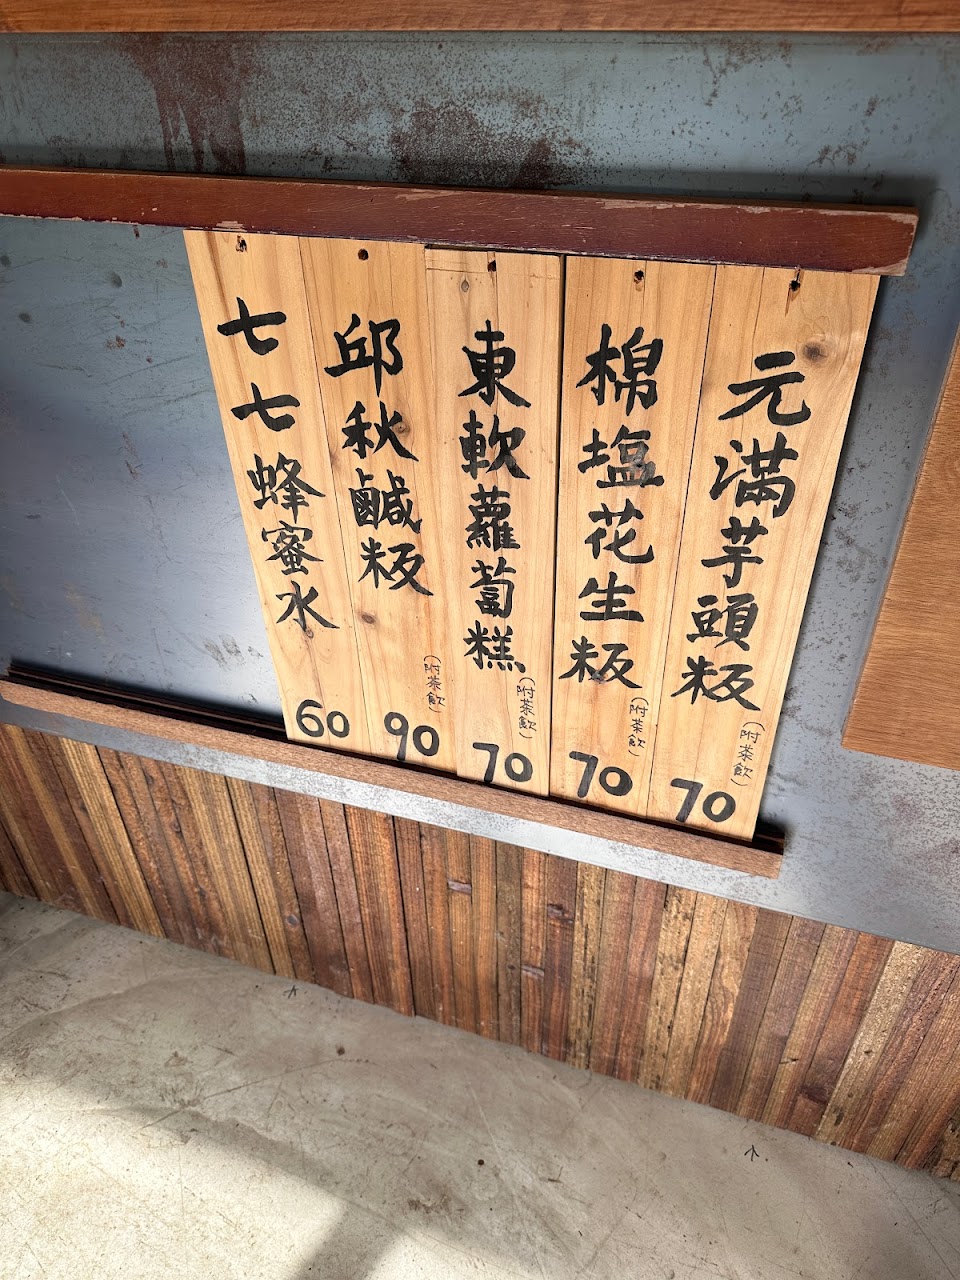 元滿芋頭粄
(附茶飲)
70
棉塩花生粄
(附茶飲)
70
東軟蘿蔔糕
(附茶飲)
70
邱秋鹹粄
(附茶飲)
90
七七蜂蜜水
60